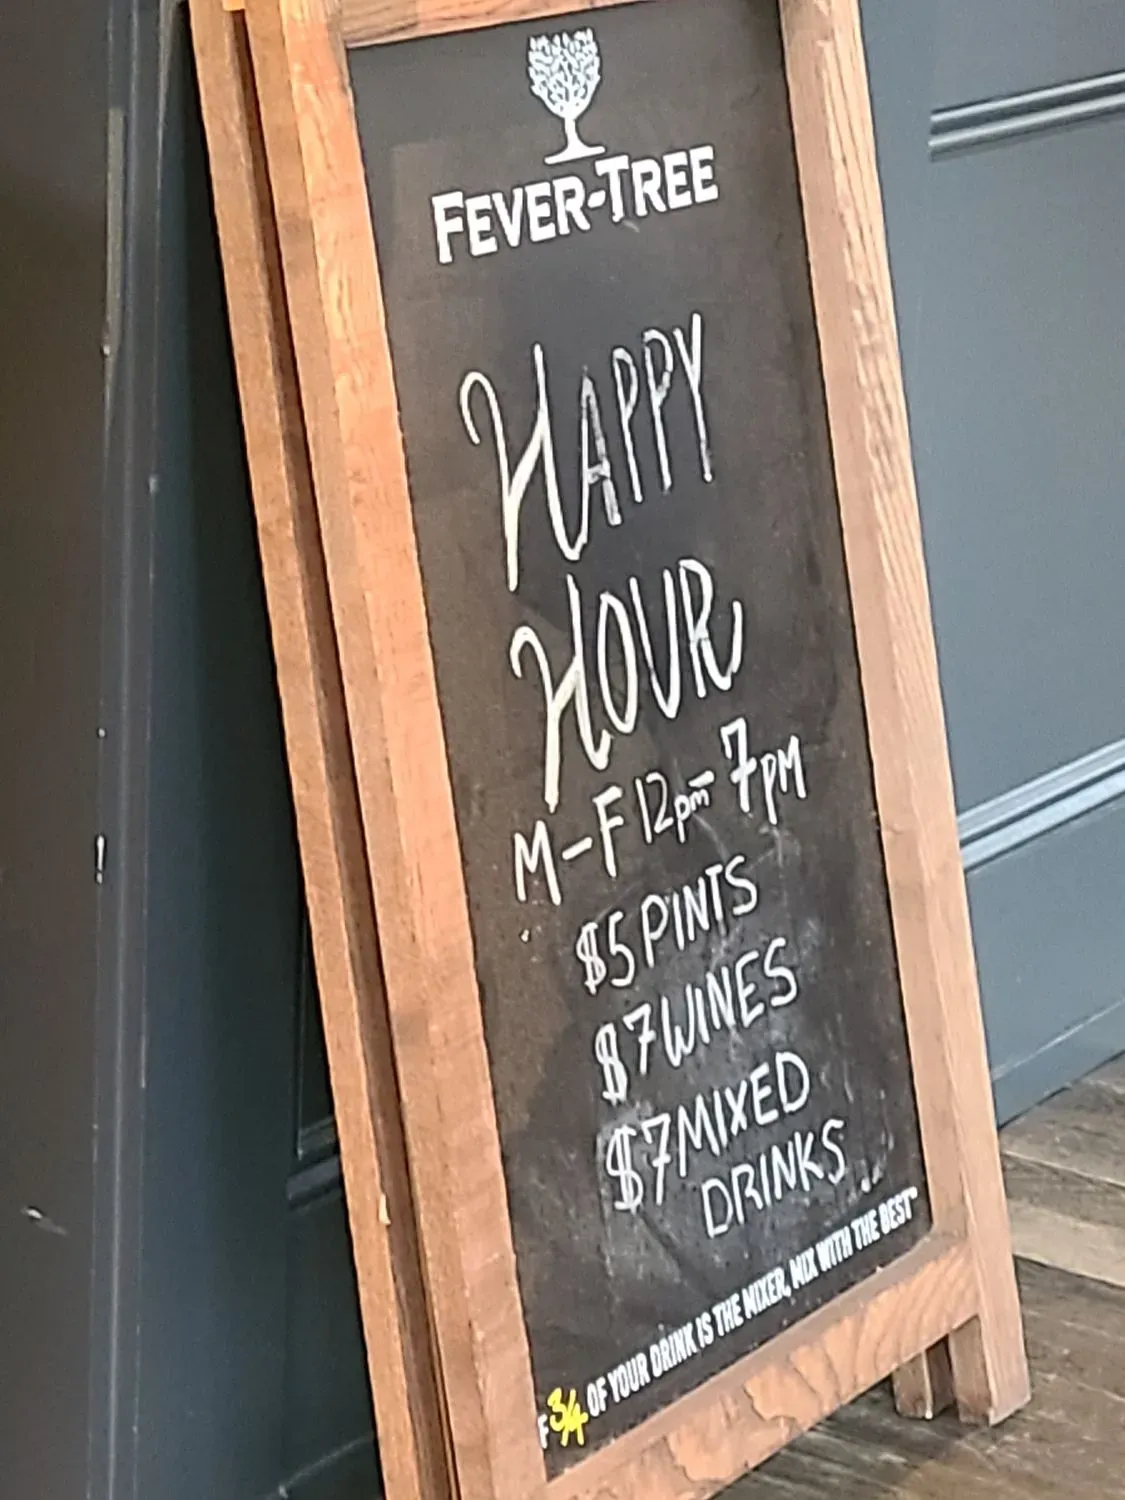 FEVER-TREE
HAPPY
HOUR
M-F 12pm-7PM
$5 PINTS
$7 WINES
$7 MIXED
DRINKS
F 3/4 OF YOUR DRINK IS THE MIXER, MIX WITH THE BEST